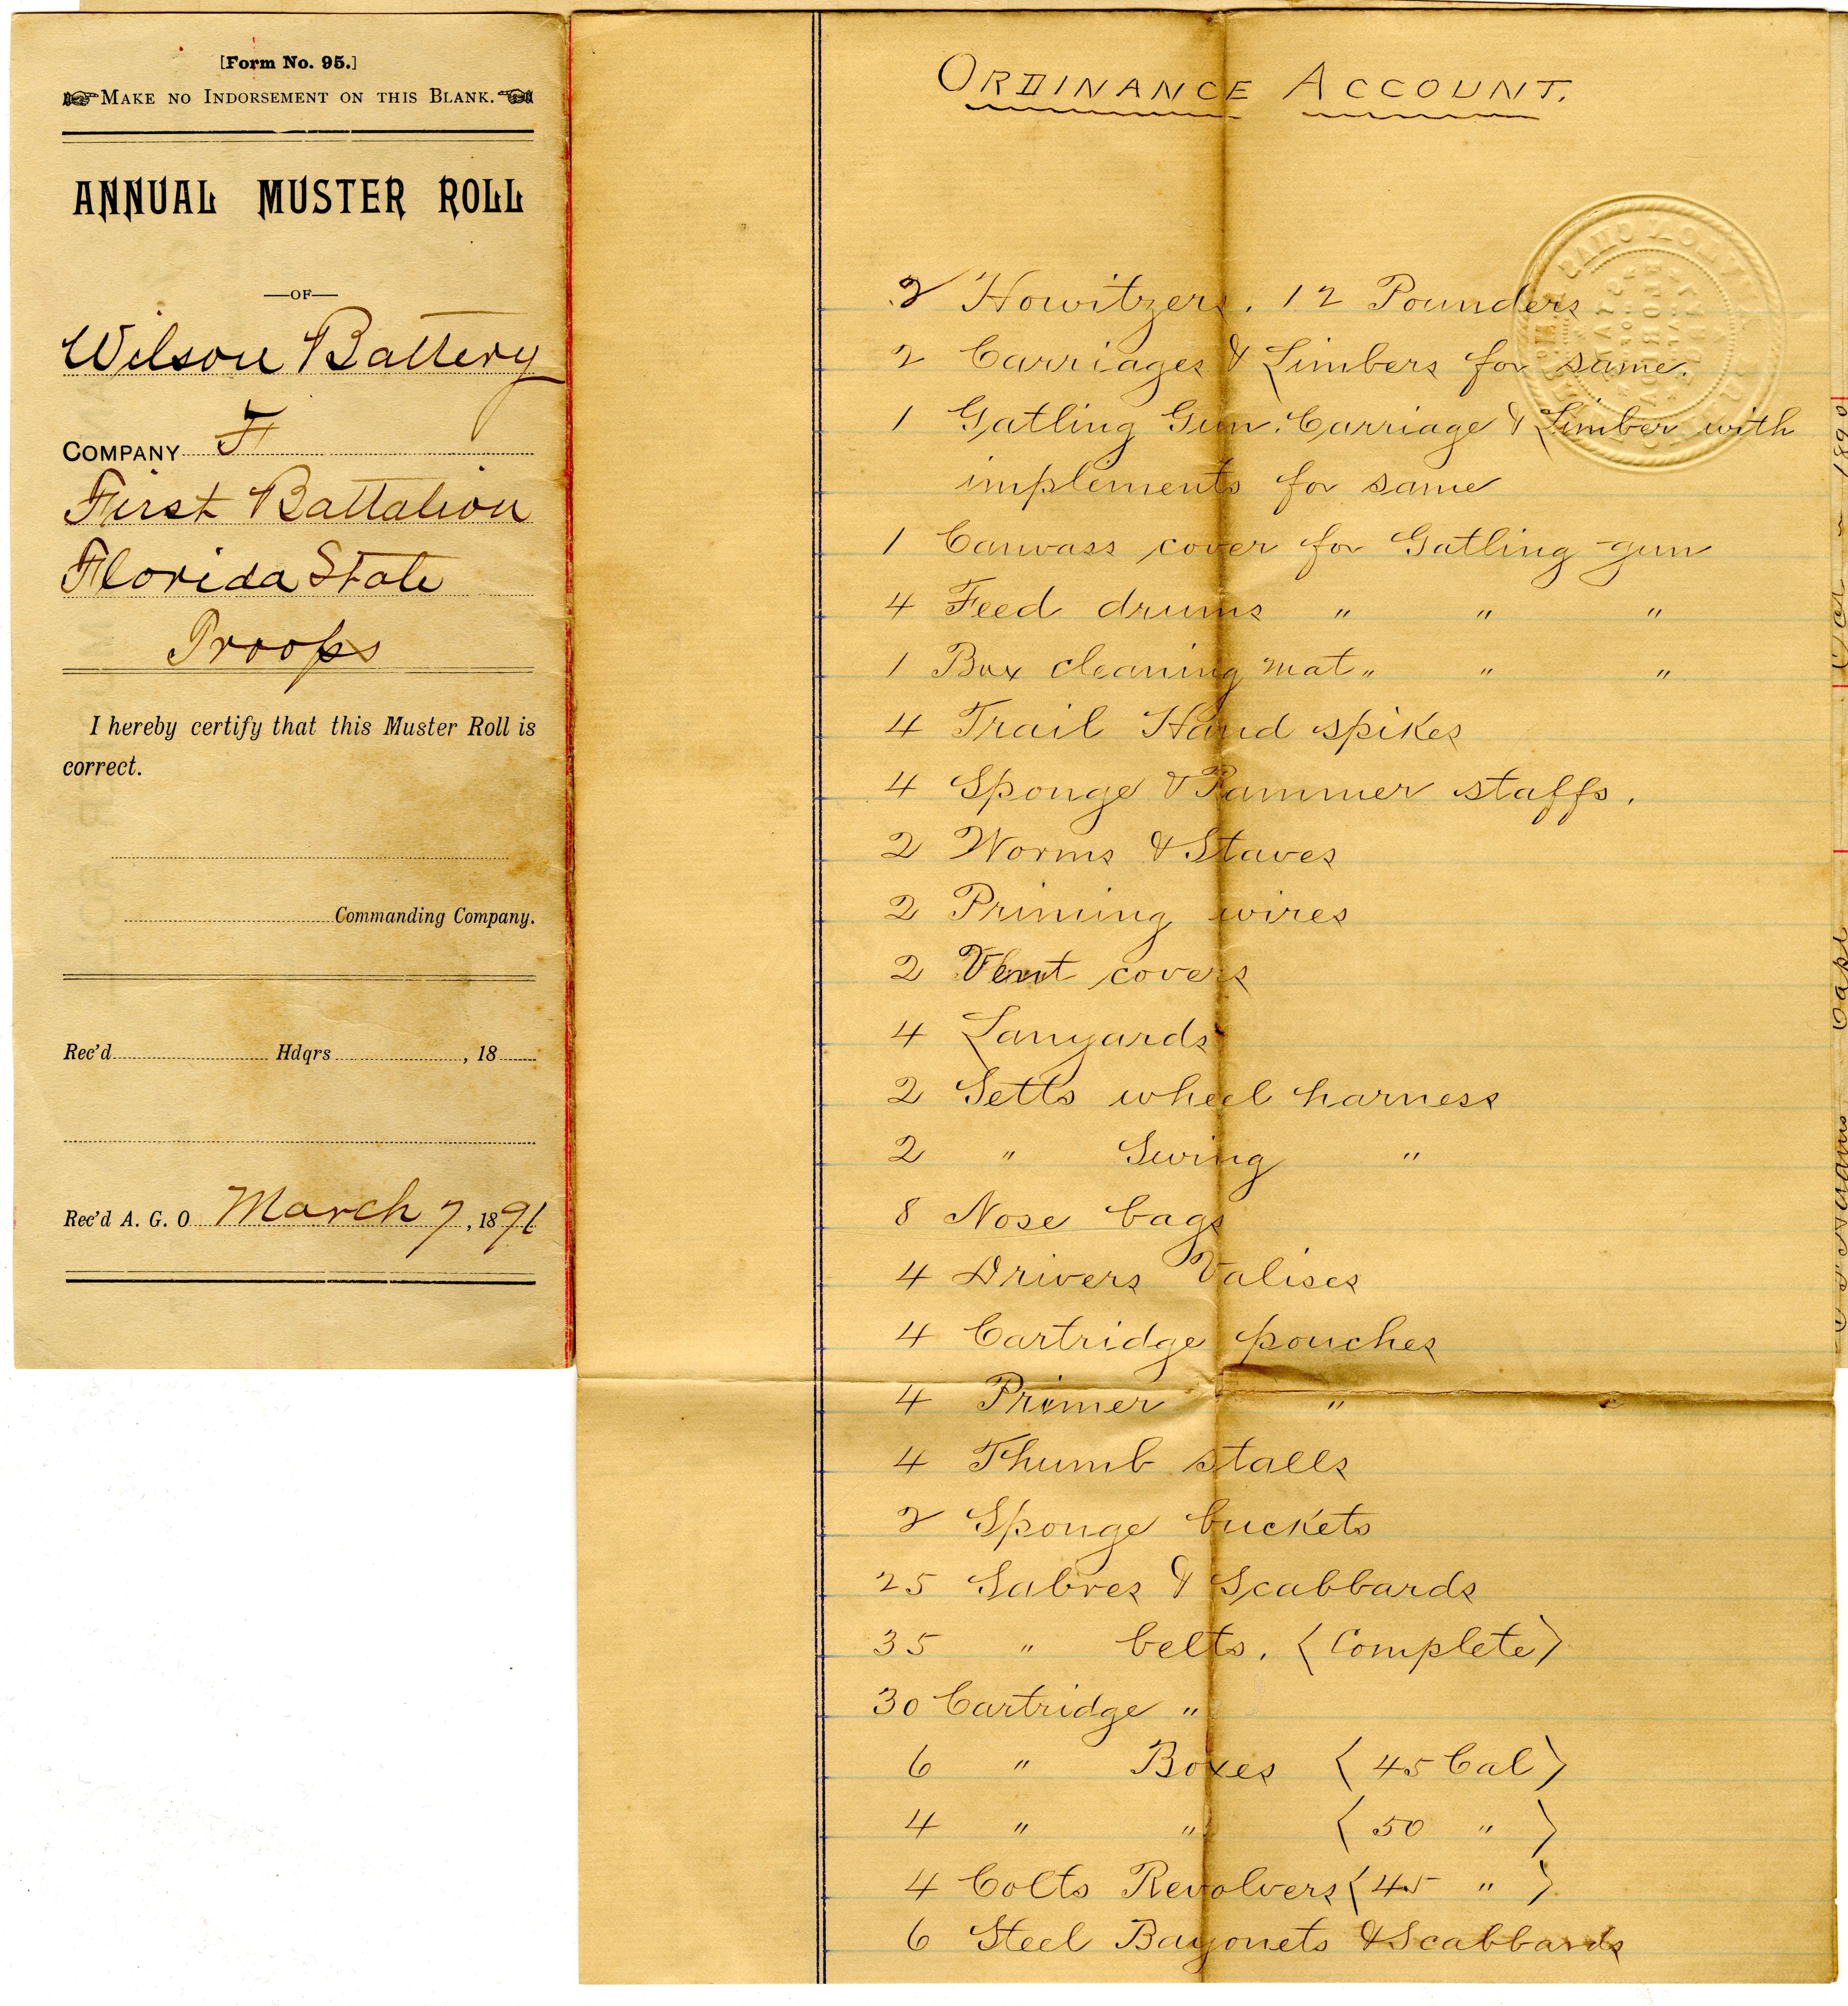 [Form No. 95.]
MAKE NO INDORSEMENT ON THIS BLANK.
ANNUAL MUSTER ROLL
—OF—
Wilson Battery
COMPANY F
First Battalion
Florida State
Troops
I hereby certify that this Muster Roll is
correct.
Commanding Company.
Rec'd Hdqrs , 18
Rec'd A. G. O March 7, 1891
ORDINANCE ACCOUNT.
2 Howitzers. 12 Pounders
2 Carriages & Limbers for same.
1 Gatling Gun. Carriage & Limber with
implements for same
1 Canvass cover for Gatling gun
4 Feed drums " " "
1 Box cleaning mat " " "
4 Trail Hand spikes
4 Sponge & Rammer staffs.
2 Worms & Staves
2 Priming wires
2 Vent covers
4 Lanyards
2 Setts wheel harness
2 " Swing "
8 Nose bags
4 Drivers Valises
4 Cartridge pouches
4 Primer "
4 Thumb stalls
2 Sponge buckets
25 Sabres & Scabbards
35 " belts. (Complete)
30 Cartridge "
6 " Boxes (45 Cal)
4 " " (50 " )
4 Colts Revolvers (45 " )
6 Steel Bayonets & Scabbards